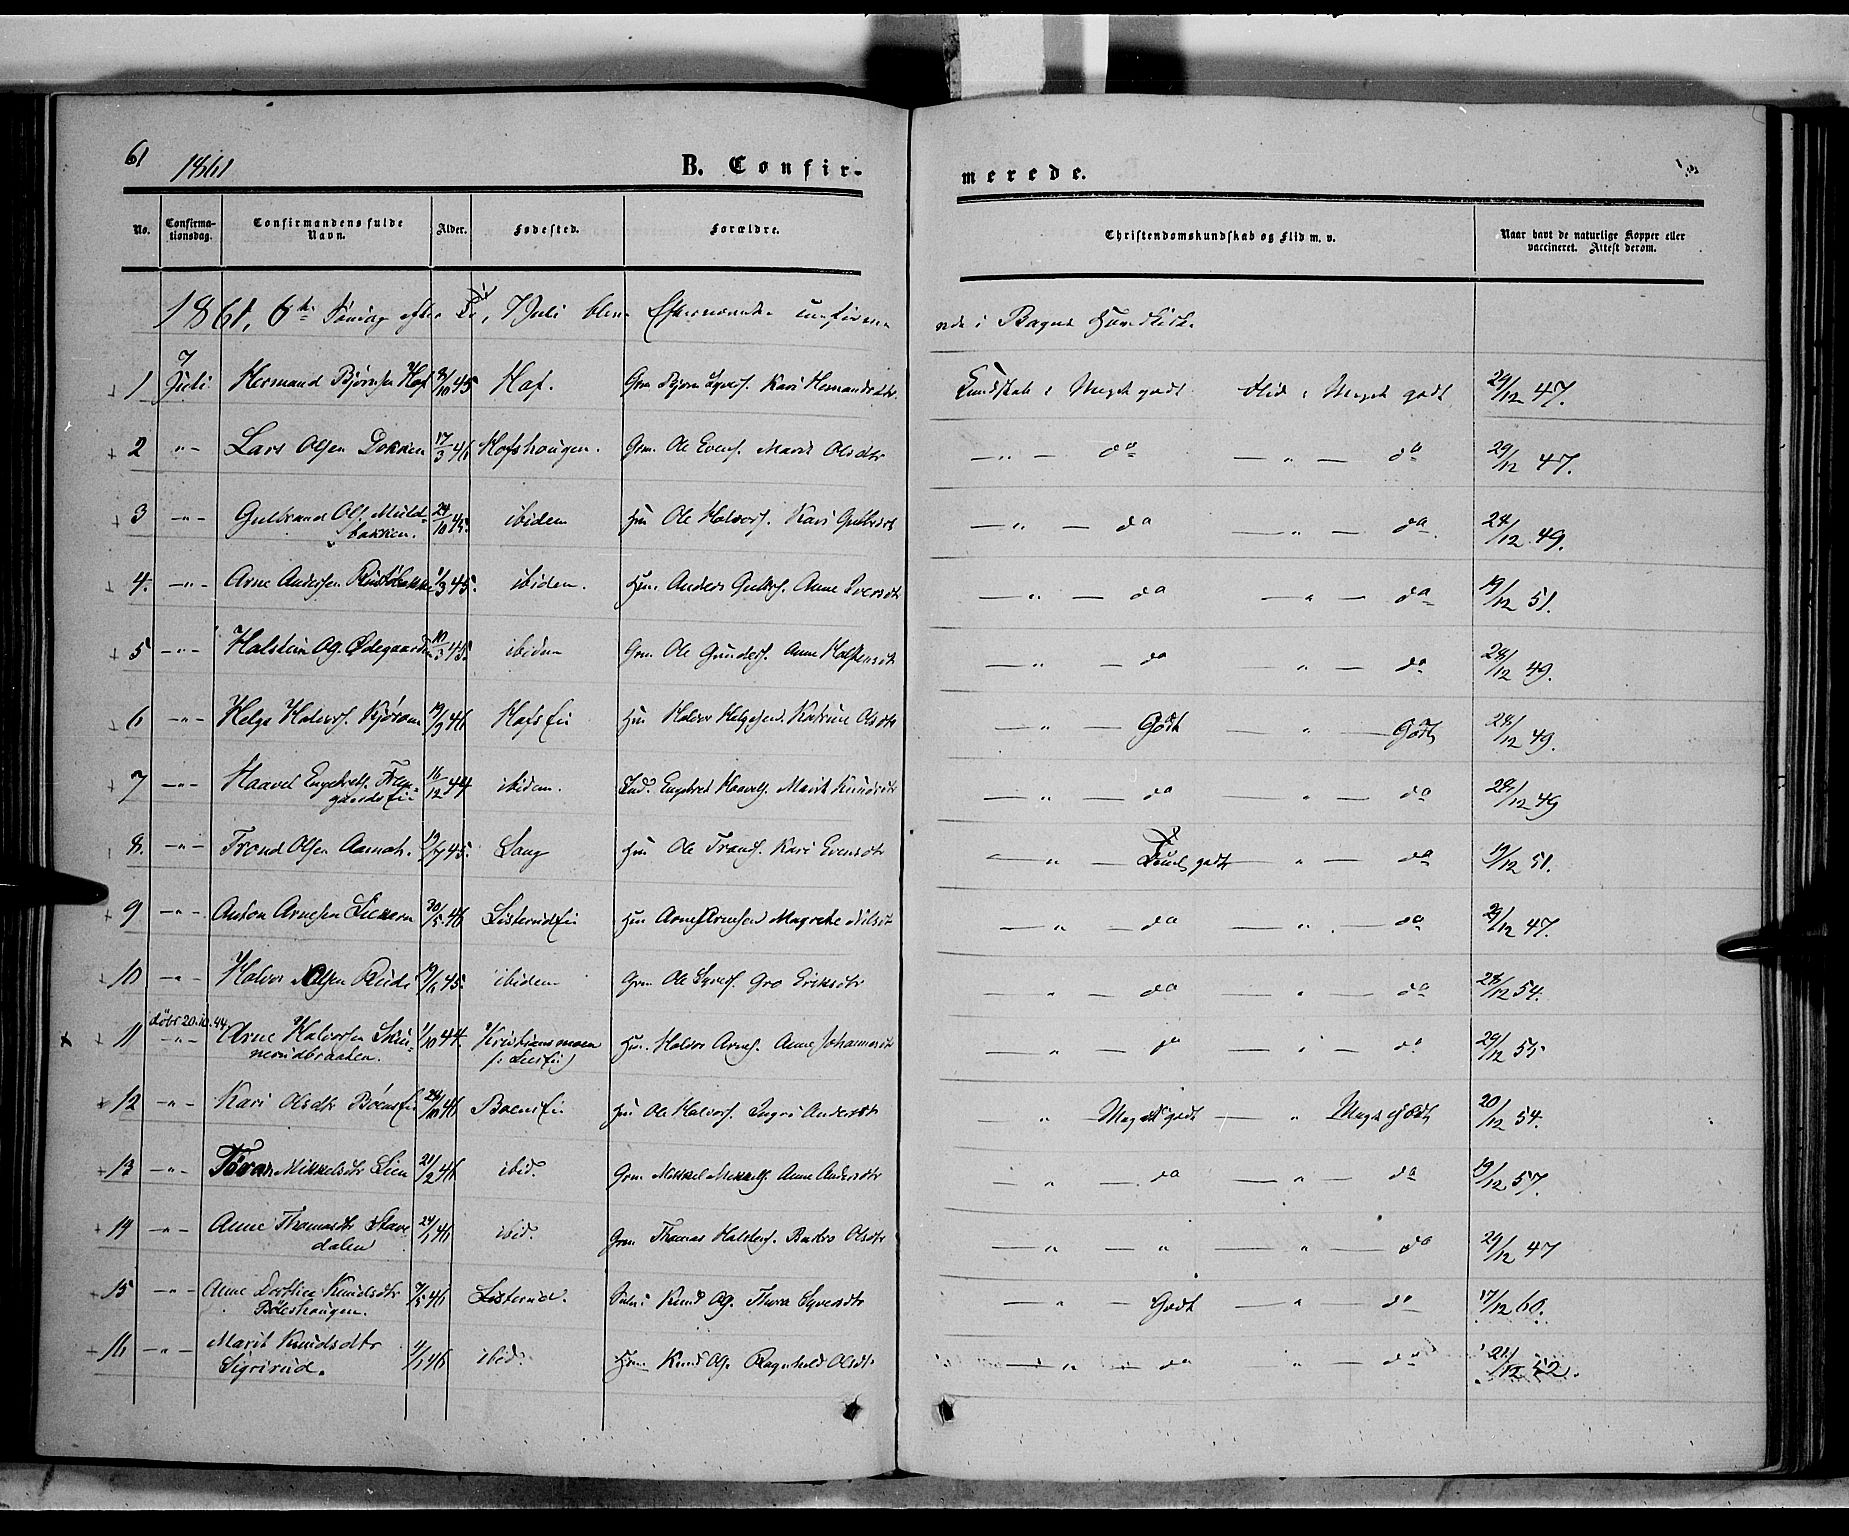 61
1861
B. Confir-
merede.
No.
Confirma-
tionsdag.
Confirmandens fulde
Navn.
Alder.
Fødested.
Forældre.
Christendomskundskab og Flid m. v.
Naar havt de naturlige Kopper eller
vaccineret. Attest derom.
1861, 6te Søndag efter 7 Juli blev Efternævnte confirme-
rede i Bagns Hovedkirke
1 7 Juli Hermand Bjørnsen Hof 8/10 45 Hof. Grm Bjørn Syvers. Kari Hermandsdtr. Kundskab: Meget godt Flid: Meget godt 29/12 47.
2 -"- Lars Olsen Dokken 17/3 46 Hofshougen. Grm. Ole Evens. Marit Olsdtr — " — do — " — do 29/12 47.
3 -"- Gulbrand Ols. Muld-
bakken. 24/10 45. ibidem Hm Ole Halvors. Kari Gulbrdt — " — do — " — do 24/12 49.
4. -"- Arne Andersen 1/3 45. ibidem. Hm. Anders Gulbrs. Anne Iversdtr — " — do — " — do 19/12 51.
5 -"- Halstein Og. Ødegaarden 10/3 45. ibidem Grm. Ole Gunders. Anne Halstensdt — " — do " — do 24/12 49.
6 -"- Helge Halvors. Bjøraen 19/3 46 Hofs Ei Hm Halvor Helgesen. Katrine Olsdtr — " — Godt — " — Godt 24/12 49.
7 -"- Haavel Engebrets. 16/12 44 ibidem. Ind. Engebret Haavels. Marit Knudsdtr — " — do — " — do 24/12 49
8. -"- Trond Olsen Aamot. 19/7 45. Haug Hm Ole Tronds. Kari Evensdtr — " — Temmel. godt — " — do 19/12 51.
9 -"- Anton Arnesen 30/5 46 Listerud Ei Hm Arne Arnesen Magrete Nilsdt — " — do — " — do 29/12 47.
10 -"- Halvor Olsen Rude 19/6 45. ibidem Grm Ole Syvers. Gro Eriksdtr — " — do — " — do 24/12 54.
11 døbt 20.10.44 -"- Arne Halvorsen Skin-
nerudbraaten. 1/10 44. Kristiansmoen Hm. Halvor Arnes. Anne Johannesdt — " — do — " — do 29/12 55
12 -"- Kari Olsdtr Bøens Ei 24/10 46 Bøens Ei Hm Ole Halvors. Ingri Andersdtr " Meget godt — " Meget godt 20/12 54.
13 -"- Mikkelsdtr Lien 21/2 46 ibid. Grm. Mikkel Mikkels. Anne Andersdtr — " — do — " — do 19/12 57.
14 -"- Anne Thomasdtr Stave-
dalen 24/1 46 ibid. Grm. Thomas Halstens. Barbro Olsdtr — " — " — " — do 29/12 47
15 -"- Anne Dorthea Knudsdtr
Bøleshaugen. 7/5 46 Listerud. Knud Og. Thora Syversdtr — " — Godt — " — do 17/12 60.
16 -"- Marit Knudsdtr
Sigrirud. 11/1 46 ibid. Hm Knud Ols. Ragnhild Olsdtr — " — do " — do 21/12 52.